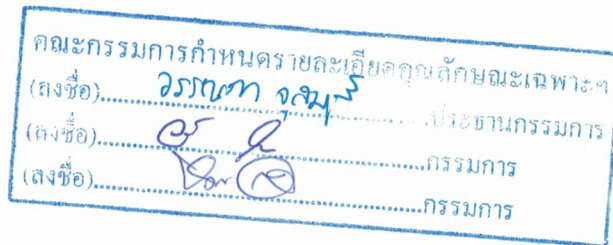 คณะกรรมการกำหนดรายละเอียดคุณลักษณะเฉพาะฯ
(ลงชื่อ)..............................ประธานกรรมการ
(ลงชื่อ)..............................กรรมการ
(ลงชื่อ)..............................กรรมการ